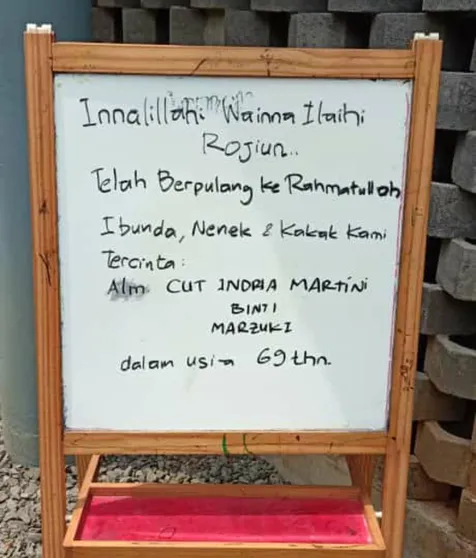 Innalillahi Wainna Ilaihi
Rojiun..
Telah Berpulang ke Rahmatullah
Ibunda, Nenek & Kakak Kami
Tercinta :
Alm CUT INDRIA MARTINI
BINTI
MARZUKI
dalam usia 69 thn.